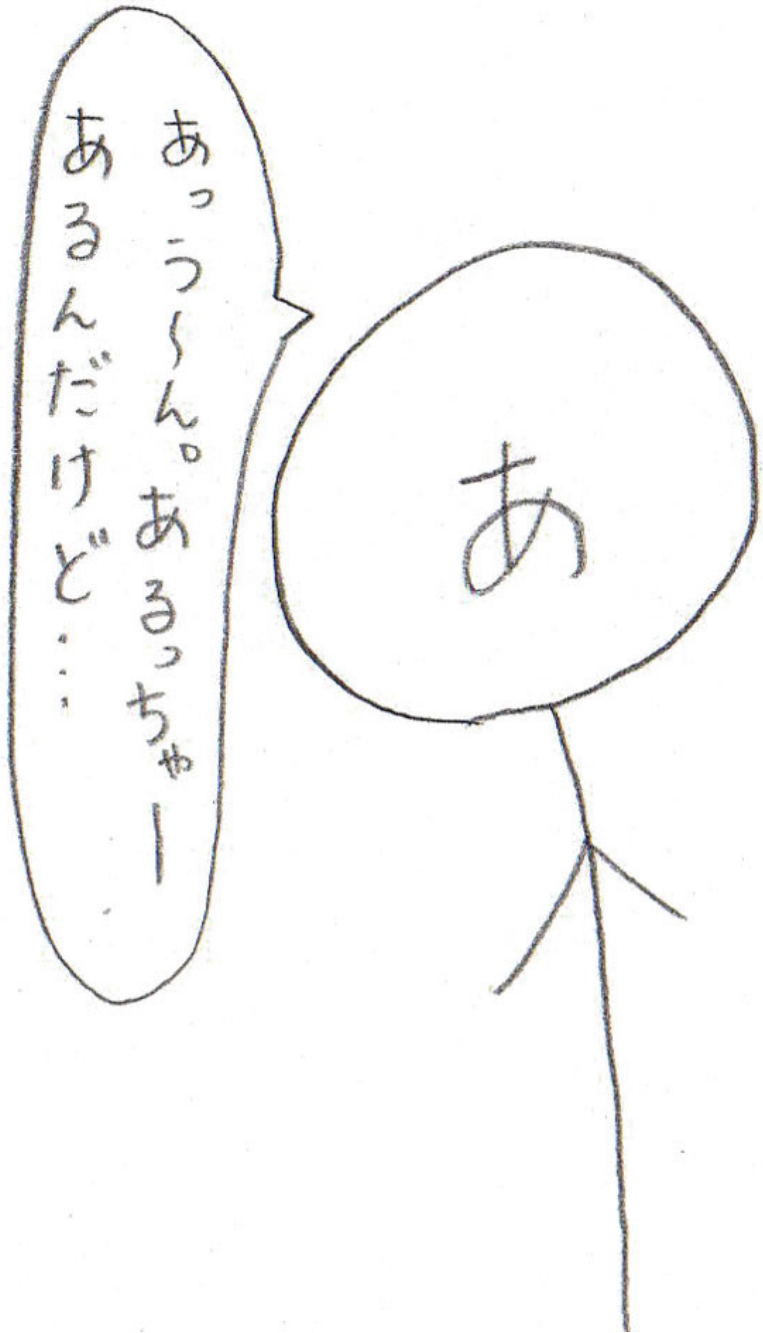 あっう〜ん。あるっちゃー
あるんだけど…
あ